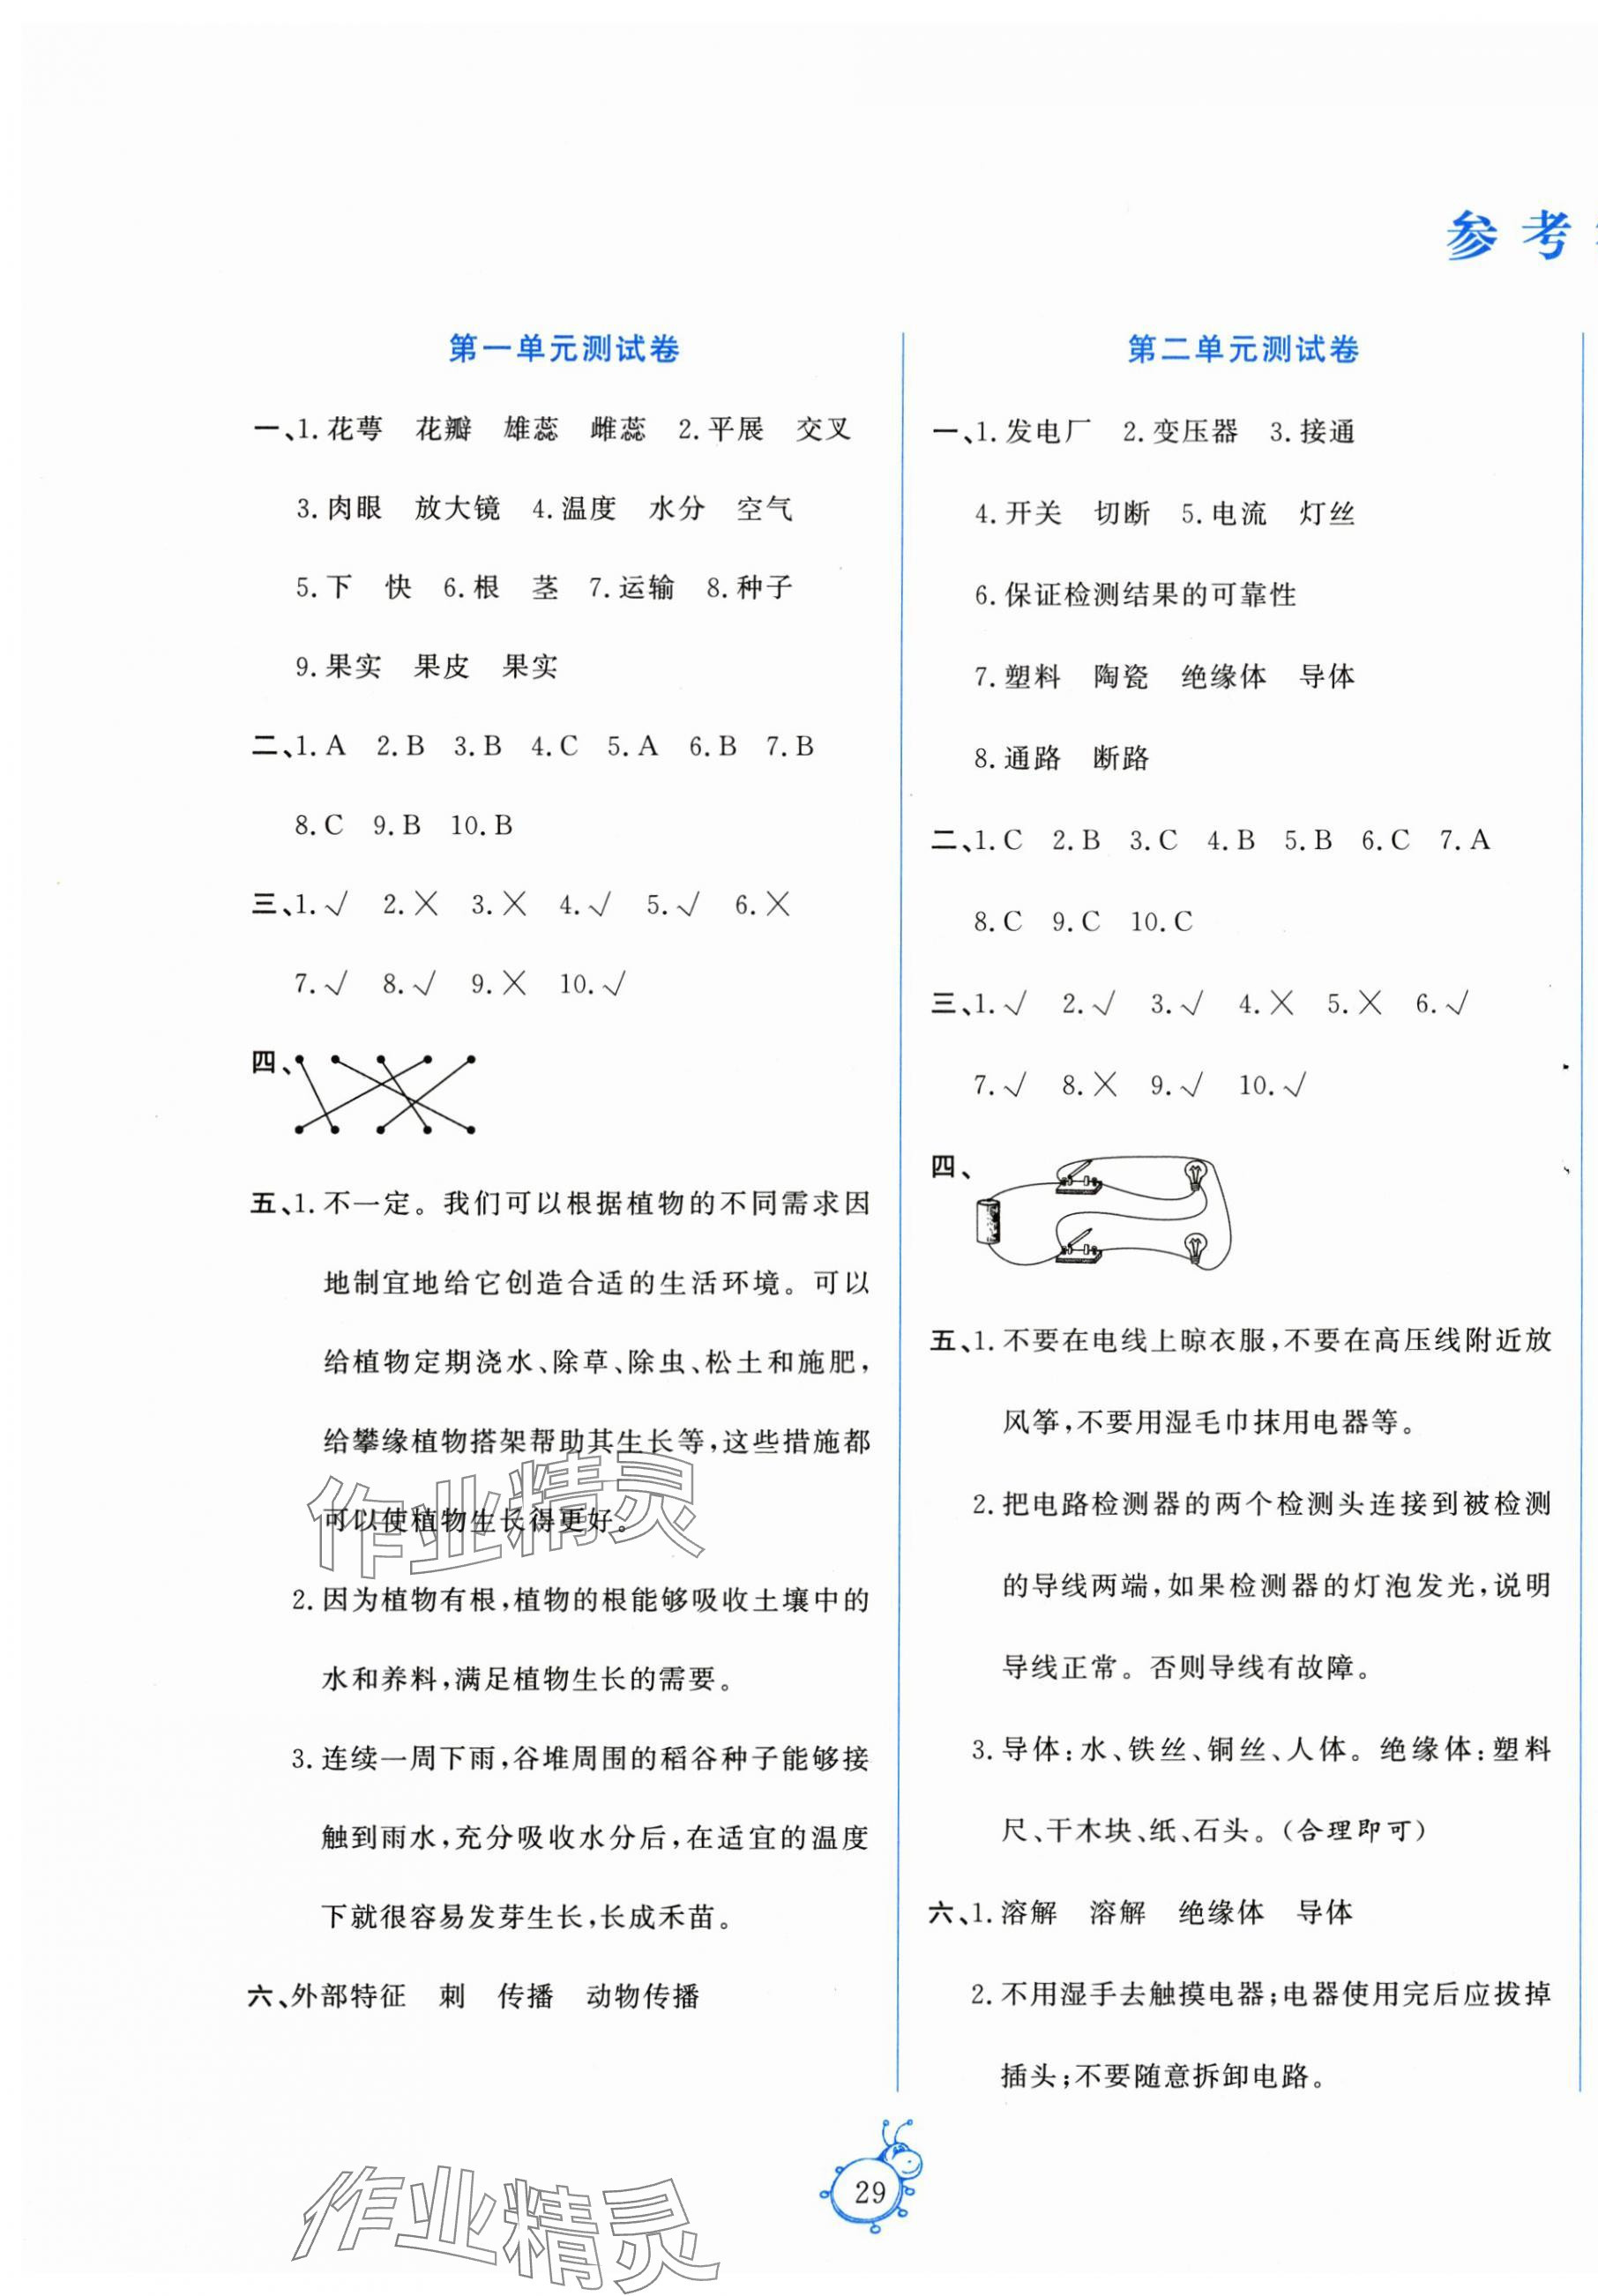 参考
第一单元测试卷
一、1.花萼 花瓣 雄蕊 雌蕊 2.平展 交叉
3.肉眼 放大镜 4.温度 水分 空气
5.下 快 6.根 茎 7.运输 8.种子
9.果实 果皮 果实
二、1.A 2.B 3.B 4.C 5.A 6.B 7.B
8.C 9.B 10.B
三、1.√ 2.× 3.× 4.√ 5.√ 6.×
7.√ 8.√ 9.× 10.√
四、
五、1.不一定。我们可以根据植物的不同需求因
地制宜地给它创造合适的生活环境。可以
给植物定期浇水、除草、除虫、松土和施肥，
给攀缘植物搭架帮助其生长等，这些措施都
可以使植物生长得更好。
2.因为植物有根，植物的根能够吸收土壤中的
水和养料，满足植物生长的需要。
3.连续一周下雨，谷堆周围的稻谷种子能够接
触到雨水，充分吸收水分后，在适宜的温度
下就很容易发芽生长，长成禾苗。
六、外部特征 刺 传播 动物传播
第二单元测试卷
一、1.发电厂 2.变压器 3.接通
4.开关 切断 5.电流 灯丝
6.保证检测结果的可靠性
7.塑料 陶瓷 绝缘体 导体
8.通路 断路
二、1.C 2.B 3.C 4.B 5.B 6.C 7.A
8.C 9.C 10.C
三、1.√ 2.√ 3.√ 4.× 5.× 6.√
7.√ 8.× 9.√ 10.√
四、
五、1.不要在电线上晾衣服，不要在高压线附近放
风筝，不要用湿毛巾抹用电器等。
2.把电路检测器的两个检测头连接到被检测
的导线两端，如果检测器的灯泡发光，说明
导线正常。否则导线有故障。
3.导体：水、铁丝、铜丝、人体。绝缘体：塑料
尺、干木块、纸、石头。（合理即可）
六、1.溶解 溶解 绝缘体 导体
2.不用湿手去触摸电器；电器使用完后应拔掉
插头；不要随意拆卸电路。
29
作业精灵
作业精灵